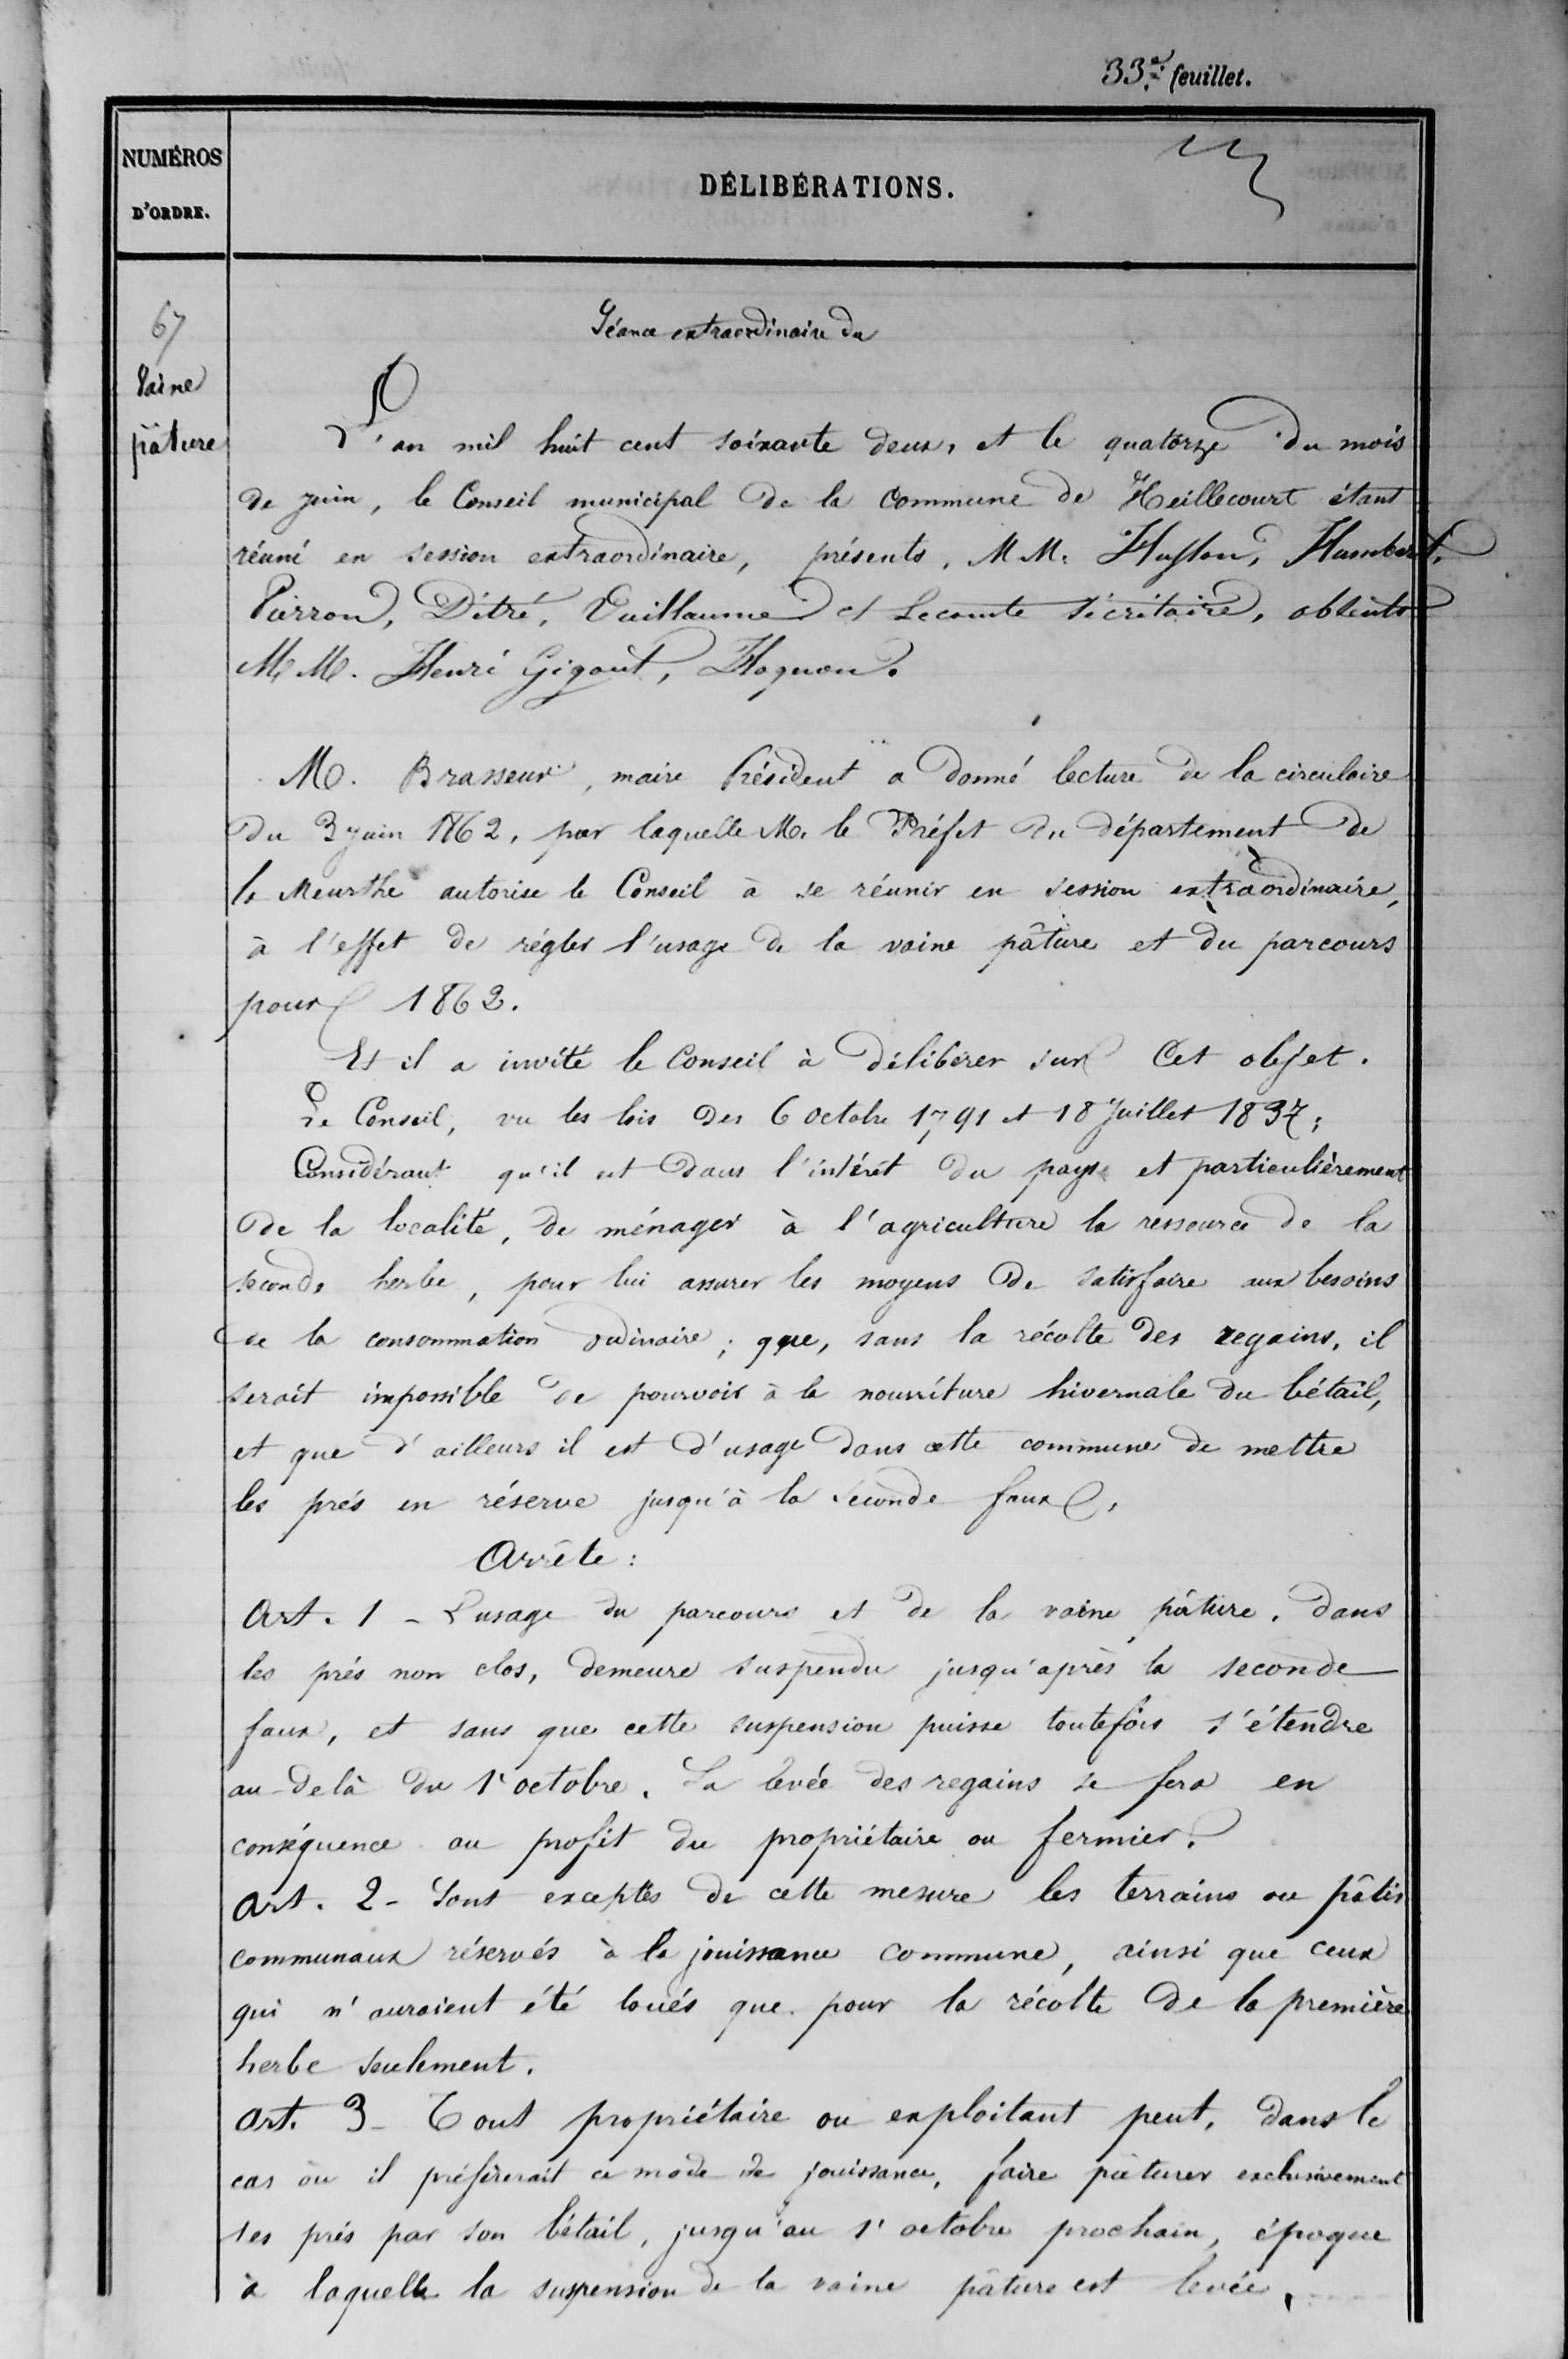 33e feuillet.
NUMÉROS
D'ORDRE.
DÉLIBÉRATIONS.
67
Vaine
pâture
Séance extraordinaire du
L'an mil huit cent soixante deux, et le quatorze du mois
de juin, le Conseil municipal de la commune de Heillecourt étant
réuni en session extraordinaire, présents, MM. Husson, Humbert,
Pierron, Ditré, Vuillaume et Lecomte sécrétaire, absents
MM. Henri Gigout, Hoquon.
M. Brasseur, maire Président a donné lecture de la circulaire
du 3 juin 1862, par laquelle M. le Préfet du département de
la Meurthe autorise le Conseil à se réunir en session extraordinaire,
à l'effet de régler l'usage de la vaine pâture et du parcours
pour 1862.
Et il a invité le Conseil à délibérer sur cet objet.
Le Conseil, vu les lois des 6 octobre 1791 et 18 Juillet 1837;
Considérant qu'il est dans l'intérêt du pays et particulièrement
de la localité, de ménager à l'agriculture la ressource de la
seconde herbe, pour lui assurer les moyens de satisfaire aux besoins
de la consommation ordinaire; que, sans la récolte des regains, il
serait impossible de pourvoir à la nourriture hivernale du bétail,
et que d'ailleurs il est d'usage dans cette commune de mettre
les prés en réserve jusqu'à la seconde faux,
Arrête:
Art. 1 - L'usage du parcours et de la vaine pâture, dans
les prés non clos, demeure suspendu jusqu'après la seconde
faux, et sans que cette suspension puisse toutefois s'étendre
au-delà du 1r octobre. La levée des regains se fera en
conséquence au profit du propriétaire ou fermier.
Art. 2 - Sont exceptés de cette mesure les terrains ou pâtis
communaux réservés à la jouissance commune, ainsi que ceux
qui n'auraient été loués que pour la récolte de la première
herbe seulement.
Art. 3 - Tout propriétaire ou exploitant peut, dans le
cas où il préférerait ce mode de jouissance, faire pâturer exclusivement
ses prés par son bétail, jusqu'au 1r octobre prochain, époque
à laquelle la suspension de la vaine pâture est levée.